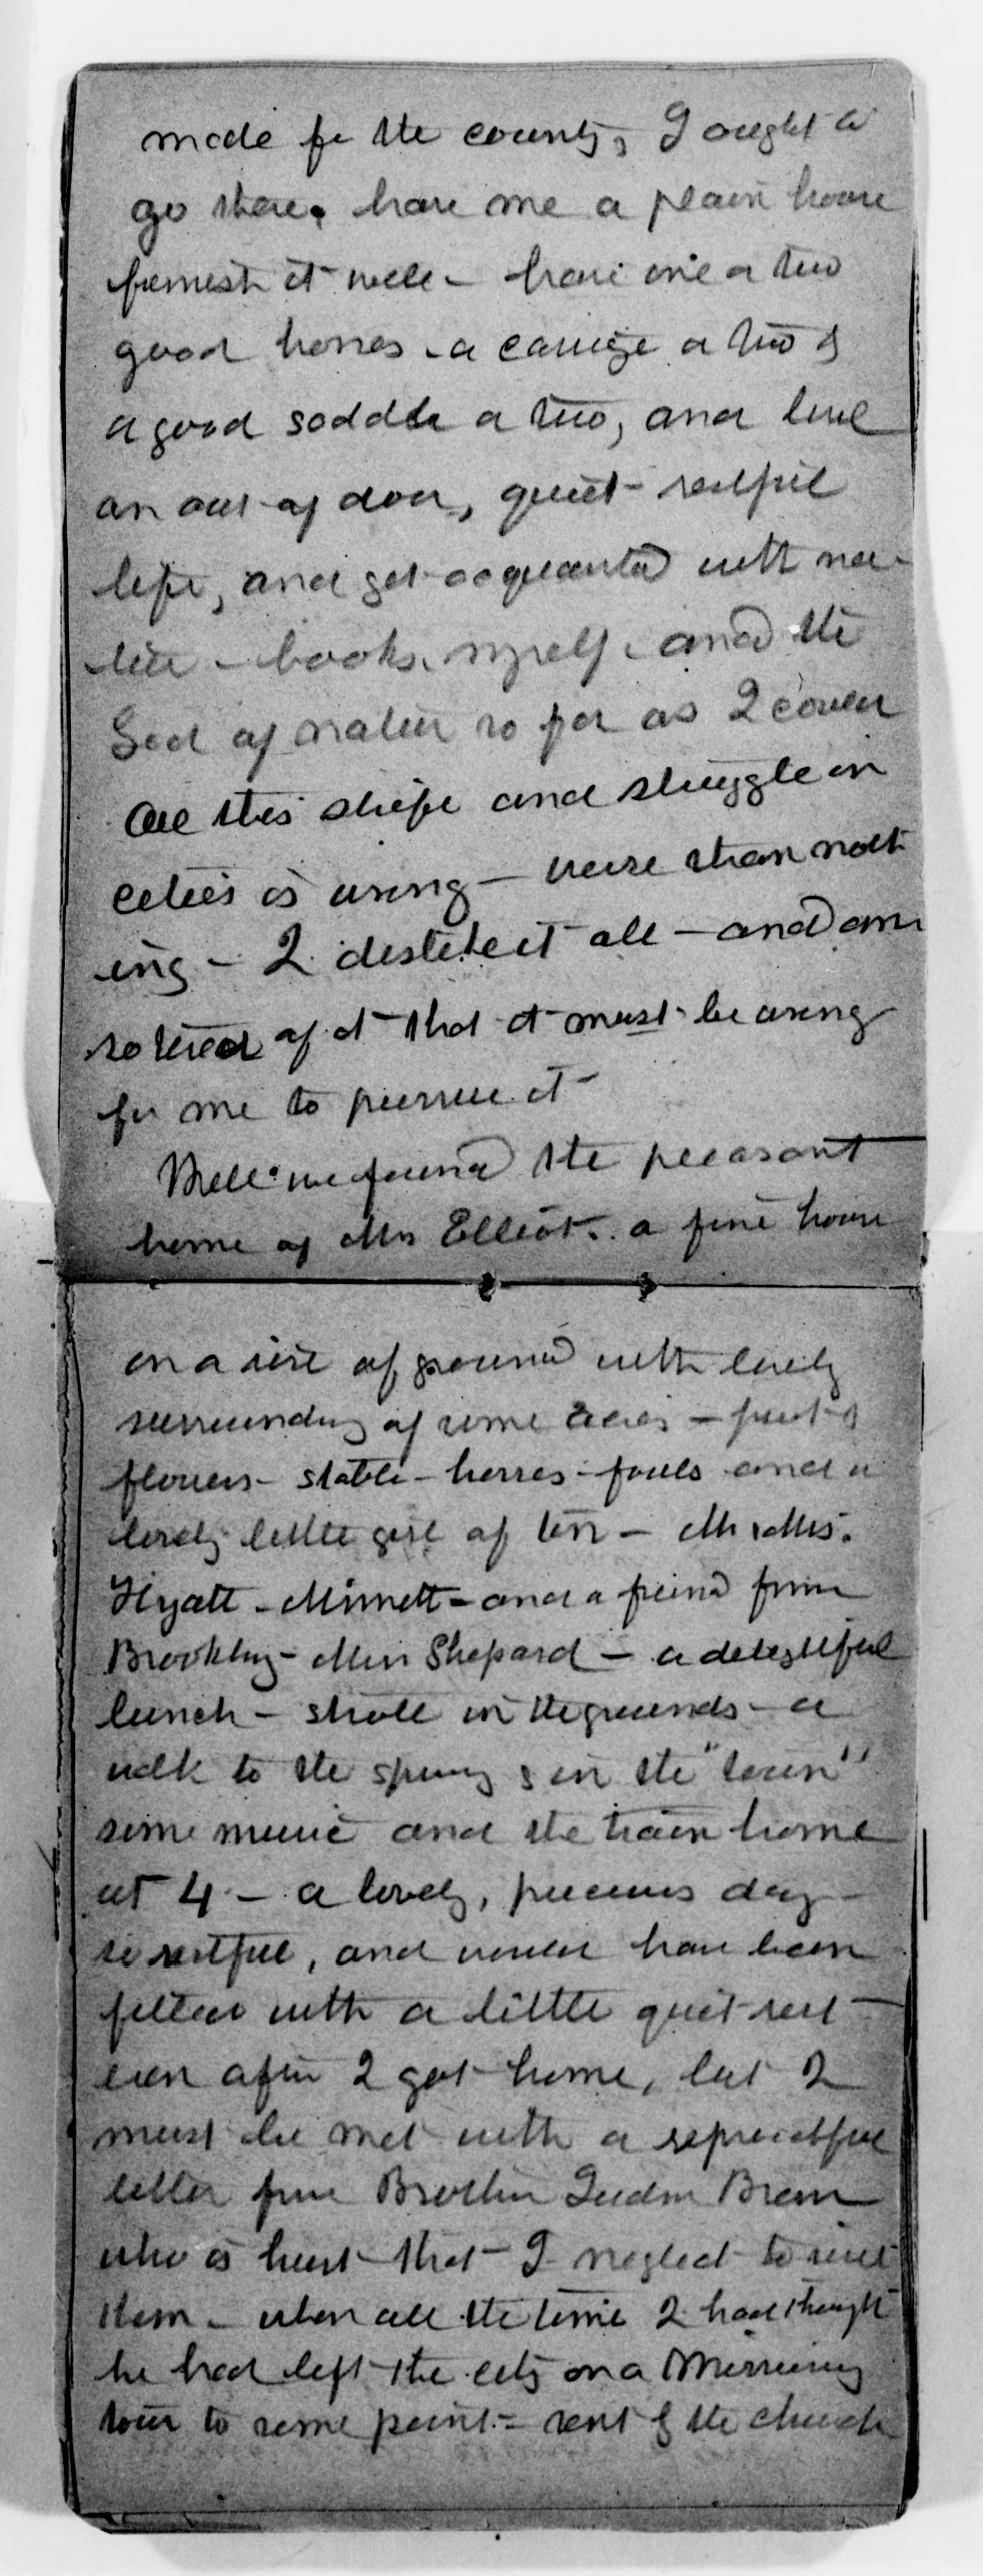 made for the country, I ought to
go there. have me a plain house
furnish it well - have one or two
good horses - a carriage or two &
a good saddle or two, and live
an out of door, quiet - restful
life, and get acquanted with na-
ture - books, myself, and the
God of nature so far as I could
All this strife and struggle in
cities is wrong - worse than noth
ing - I dislike it all - and am
so tired of it that it must be wrong
for me to pursue it -
Well we found the pleasant
home of Mrs Elliot. a fine house
on a rise of ground with lovely
surrounding of some acres - fruit &
flowers - stable - horses - fowls and a
lovely little girl of ten - Mr & Mrs.
Hyatt - - and a friend from
Brooklyn - Miss Shepard - a delightful
lunch - stroll in the grounds - a
walk to the spring & in the "town"
some music and the train home
at 4 - a lovely, precious day -
so restful, and would have been
filled with a little quiet rest -
even after I got home, but I
must be met with a reproachful
letter from Brother Brown
who is hurt that I neglect to
them - when all the time I had thought
he had left the city on a Missionary
tour to some point - sent by the church